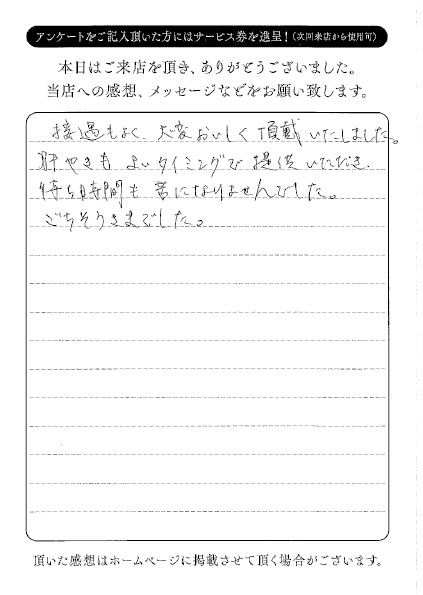 アンケートをご記入頂いた方にはサービス券を進呈!(次回来店から使用可)
本日はご来店を頂き、ありがとうございました。
当店への感想、メッセージなどをお願い致します。
接遇もよく、大変おいしく頂戴いたしました。
肝やきも よいタイミングで 提供いただき、
待ち時間も 苦になりませんでした。
ごちそうさまでした。
頂いた感想はホームページに掲載させて頂く場合がございます。